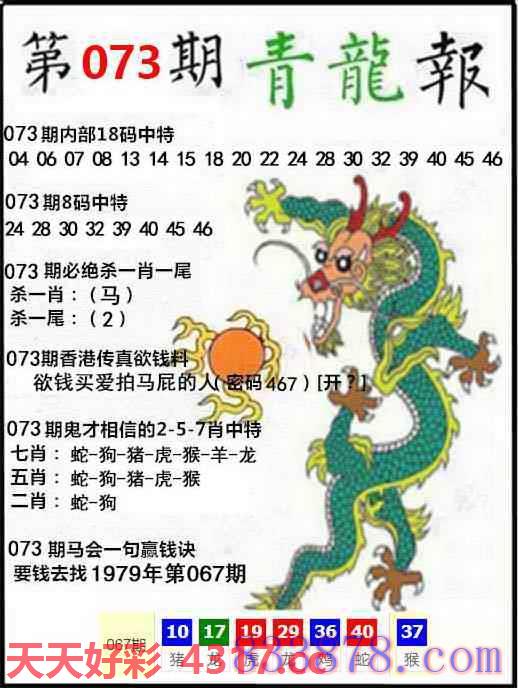 第073期 青龍報
073期内部18码中特
04 06 07 08 13 14 15 18 20 22 24 28 30 32 39 40 45 46
073期8码中特
24 28 30 32 39 40 45 46
073期必绝杀一肖一尾
杀一肖：（马）
杀一尾：（2）
073期香港传真欲钱料
欲钱买爱拍马屁的人(密码467)[开?]
073期鬼才相信的2-5-7肖中特
七肖：蛇-狗-猪-虎-猴-羊-龙
五肖：蛇-狗-猪-虎-猴
二肖：蛇-狗
073期马会一句赢钱诀
要钱去找1979年第067期
067期 10 17 19 29 36 40 37
猪 龙 虎 龙 鸡 蛇 猴
天天好彩 4317.cc
838878.com